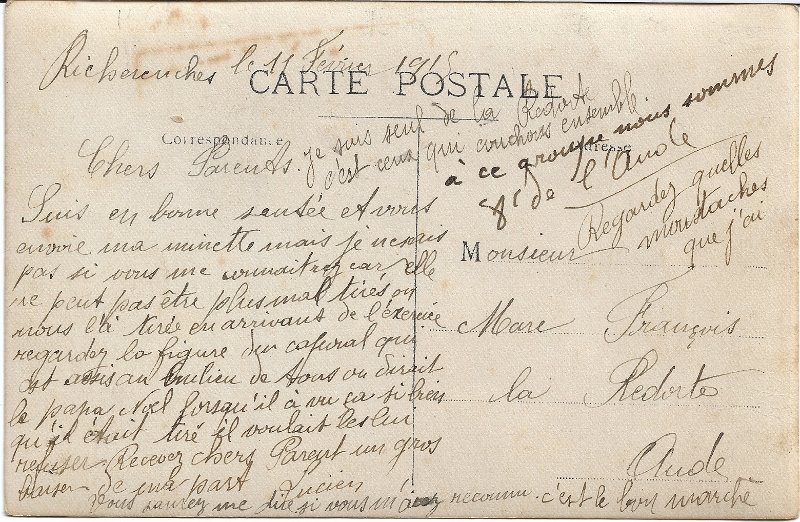 Richerenches le 11 Février 1915
CARTE POSTALE
Correspondance
Adresse
Chers Parents
je suis seul de la Redorte
c'est ceux qui couchons ensemble.
à ce groupe nous sommes
8 de l'Aude
Regardez quelles
moustaches
que j'ai
Suis en bonne sentée et vous
envoie ma minette mais je ne sais
pas si vous me connaitrez car elle
ne peut pas être plus mal tirés on
nous l'a tirée en arrivant de l'exercice
regardez la figure du caporal qui
est assis au milieu de tous on dirait
le papa Noël lorsqu'il à vu ça si bien
qu'il était tiré il voulait les lui
refuser. Recevez chers Parent un gros
baiser de ma part
Lucien
Vous saurez me dire si vous m'avez reconnu. c'est le bon marché
Monsieur
Marc François
la Redorte
Aude